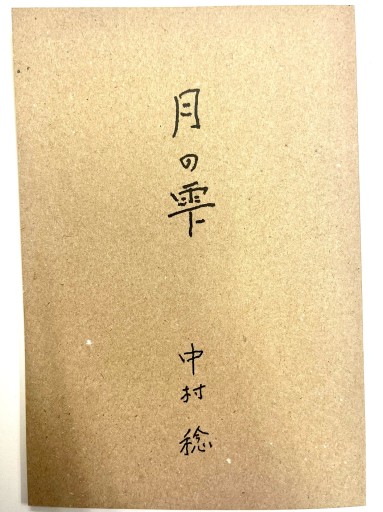 月の雫
中村 稔